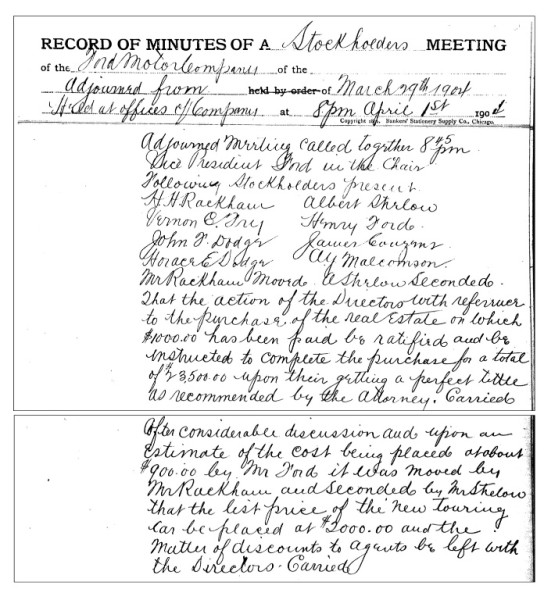 RECORD OF MINUTES OF A Stockholders MEETING
of the Ford Motor Company of the
Adjourned from held by order of March 29th 1904
Held at offices of Company at 8 pm April 1st 1904
Copyright Bankers' Stationery Supply Co., Chicago.
Adjourned Meeting called together 8 45 pm.
Vice President Ford in the Chair
Following Stockholders present.
H H Rackham Albert Strelow
Vernon C. Fry Henry Ford.
John F. Dodge James Couzens.
Horace E Dodge A Y Malcomson.
Mr Rackham Moved. A Strelow Seconded.
That the action of the Directors with referrence
to the purchase of the real Estate on which
$1000.00 has been paid be ratified and be
instructed to complete the purchase for a total
of $23500.00 upon their getting a perfect tittle
as recommended by the Attorney. Carried
After considerable discussion and upon an
Estimate of the cost being placed at about
$900.00 by Mr Ford it was moved by
Mr Rackham and Seconded by Mr Strelow
that the list price of the new touring
Car be placed at $2000.00 and the
Matter of discounts to agents be left with
the Directors - Carried